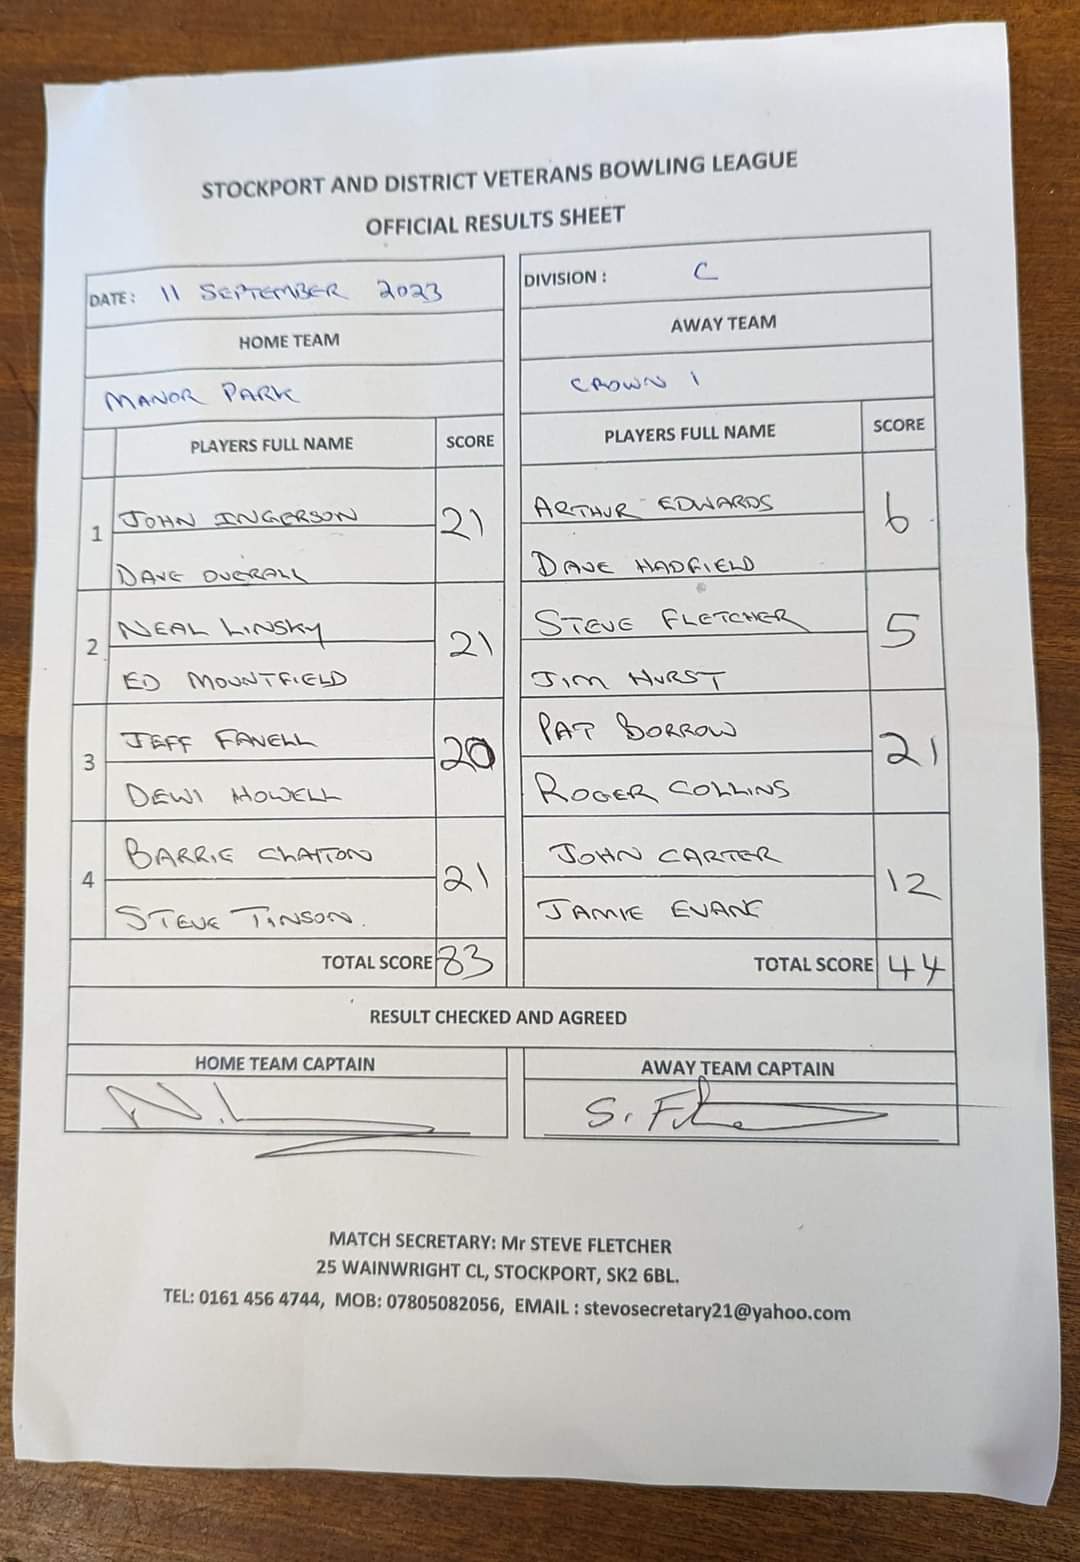 STOCKPORT AND DISTRICT VETERANS BOWLING LEAGUE
OFFICIAL RESULTS SHEET
DATE: 11 SEPTEMBER 2023
DIVISION : C
HOME TEAM
AWAY TEAM
MANOR PARK
CROWN 1
PLAYERS FULL NAME SCORE
PLAYERS FULL NAME SCORE
1 JOHN INGERSON 21
DAVE OVERALL
ARTHUR EDWARDS 6
DAVE HADFIELD
2 NEAL LINSKY 21
ED MOUNTFIELD
STEVE FLETCHER 5
JIM HURST
3 JEFF FAVELL 20
DEWI HOWELL
PAT BORROW 21
ROGER COLLINS
4 BARRIE 21
STEVE TINSON.
JOHN CARTER 12
JAMIE
TOTAL SCORE 83
TOTAL SCORE 44
RESULT CHECKED AND AGREED
HOME TEAM CAPTAIN
AWAY TEAM CAPTAIN
N.L
S.
MATCH SECRETARY: Mr STEVE FLETCHER
25 WAINWRIGHT CL, STOCKPORT, SK2 6BL.
TEL: 0161 456 4744, MOB: 07805082056, EMAIL : stevosecretary21@yahoo.com